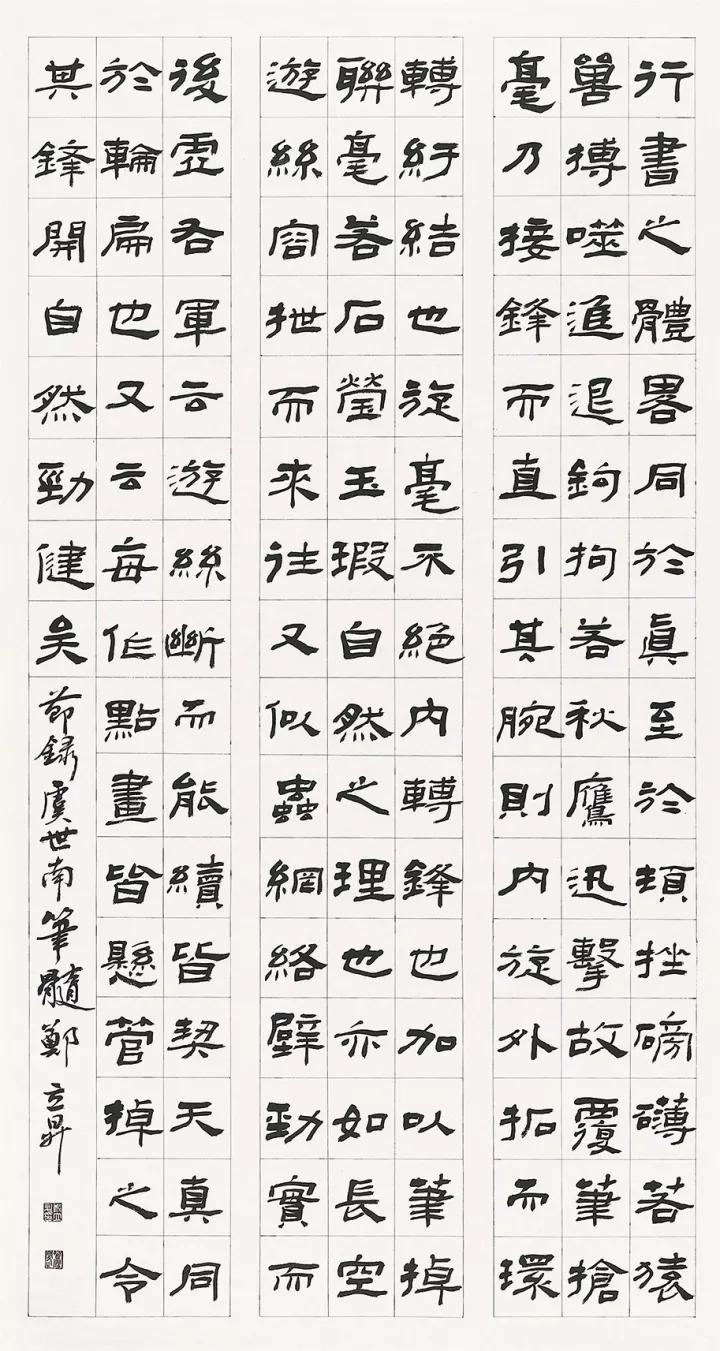 行書之體畧同於眞至於頓挫磅礴若猿
嘼搏噬進退鉤拘若秋鷹迅擊故覆筆搶
毫乃接鋒而直引其腕則内旋外拓而環
轉紆結也旋毫不絕内轉鋒也加以筆掉
聯毫若石瑩玉瑕自然之理也亦如長空
遊絲容抴而來往又似蟲網絡壁勁實而
後虛右軍云遊絲斷而能續皆契天真同
於輪扁也又云每作點畫皆懸管掉之令
其鋒開自然勁健矣 節錄虞世南筆髓 鄭立昇